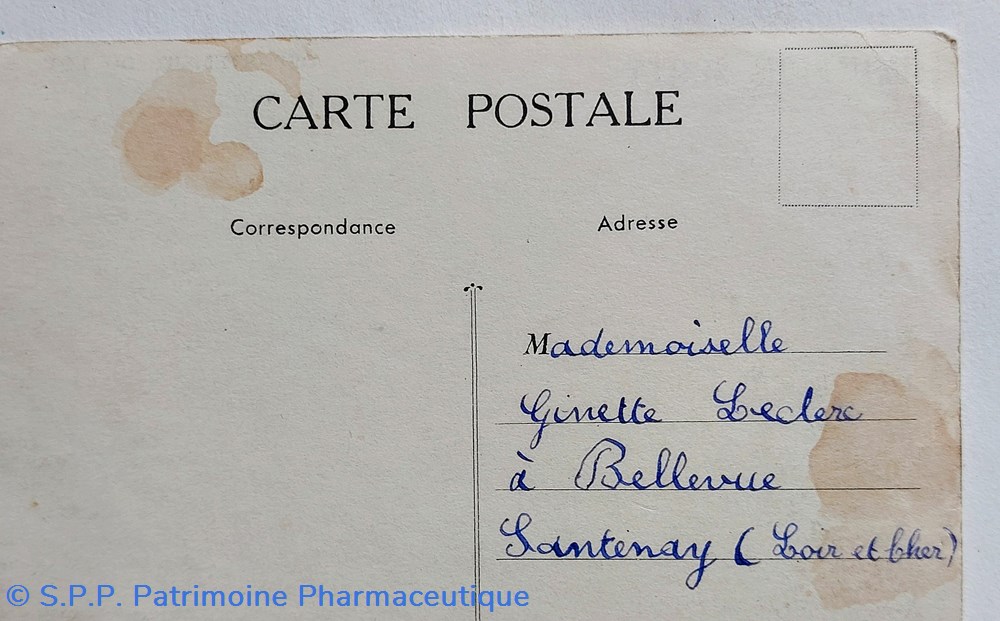 CARTE POSTALE
Correspondance
Adresse
Mademoiselle
Ginette Leclerc
à Bellevue
Santenay (Loir et Cher)
© S.P.P. Patrimoine Pharmaceutique